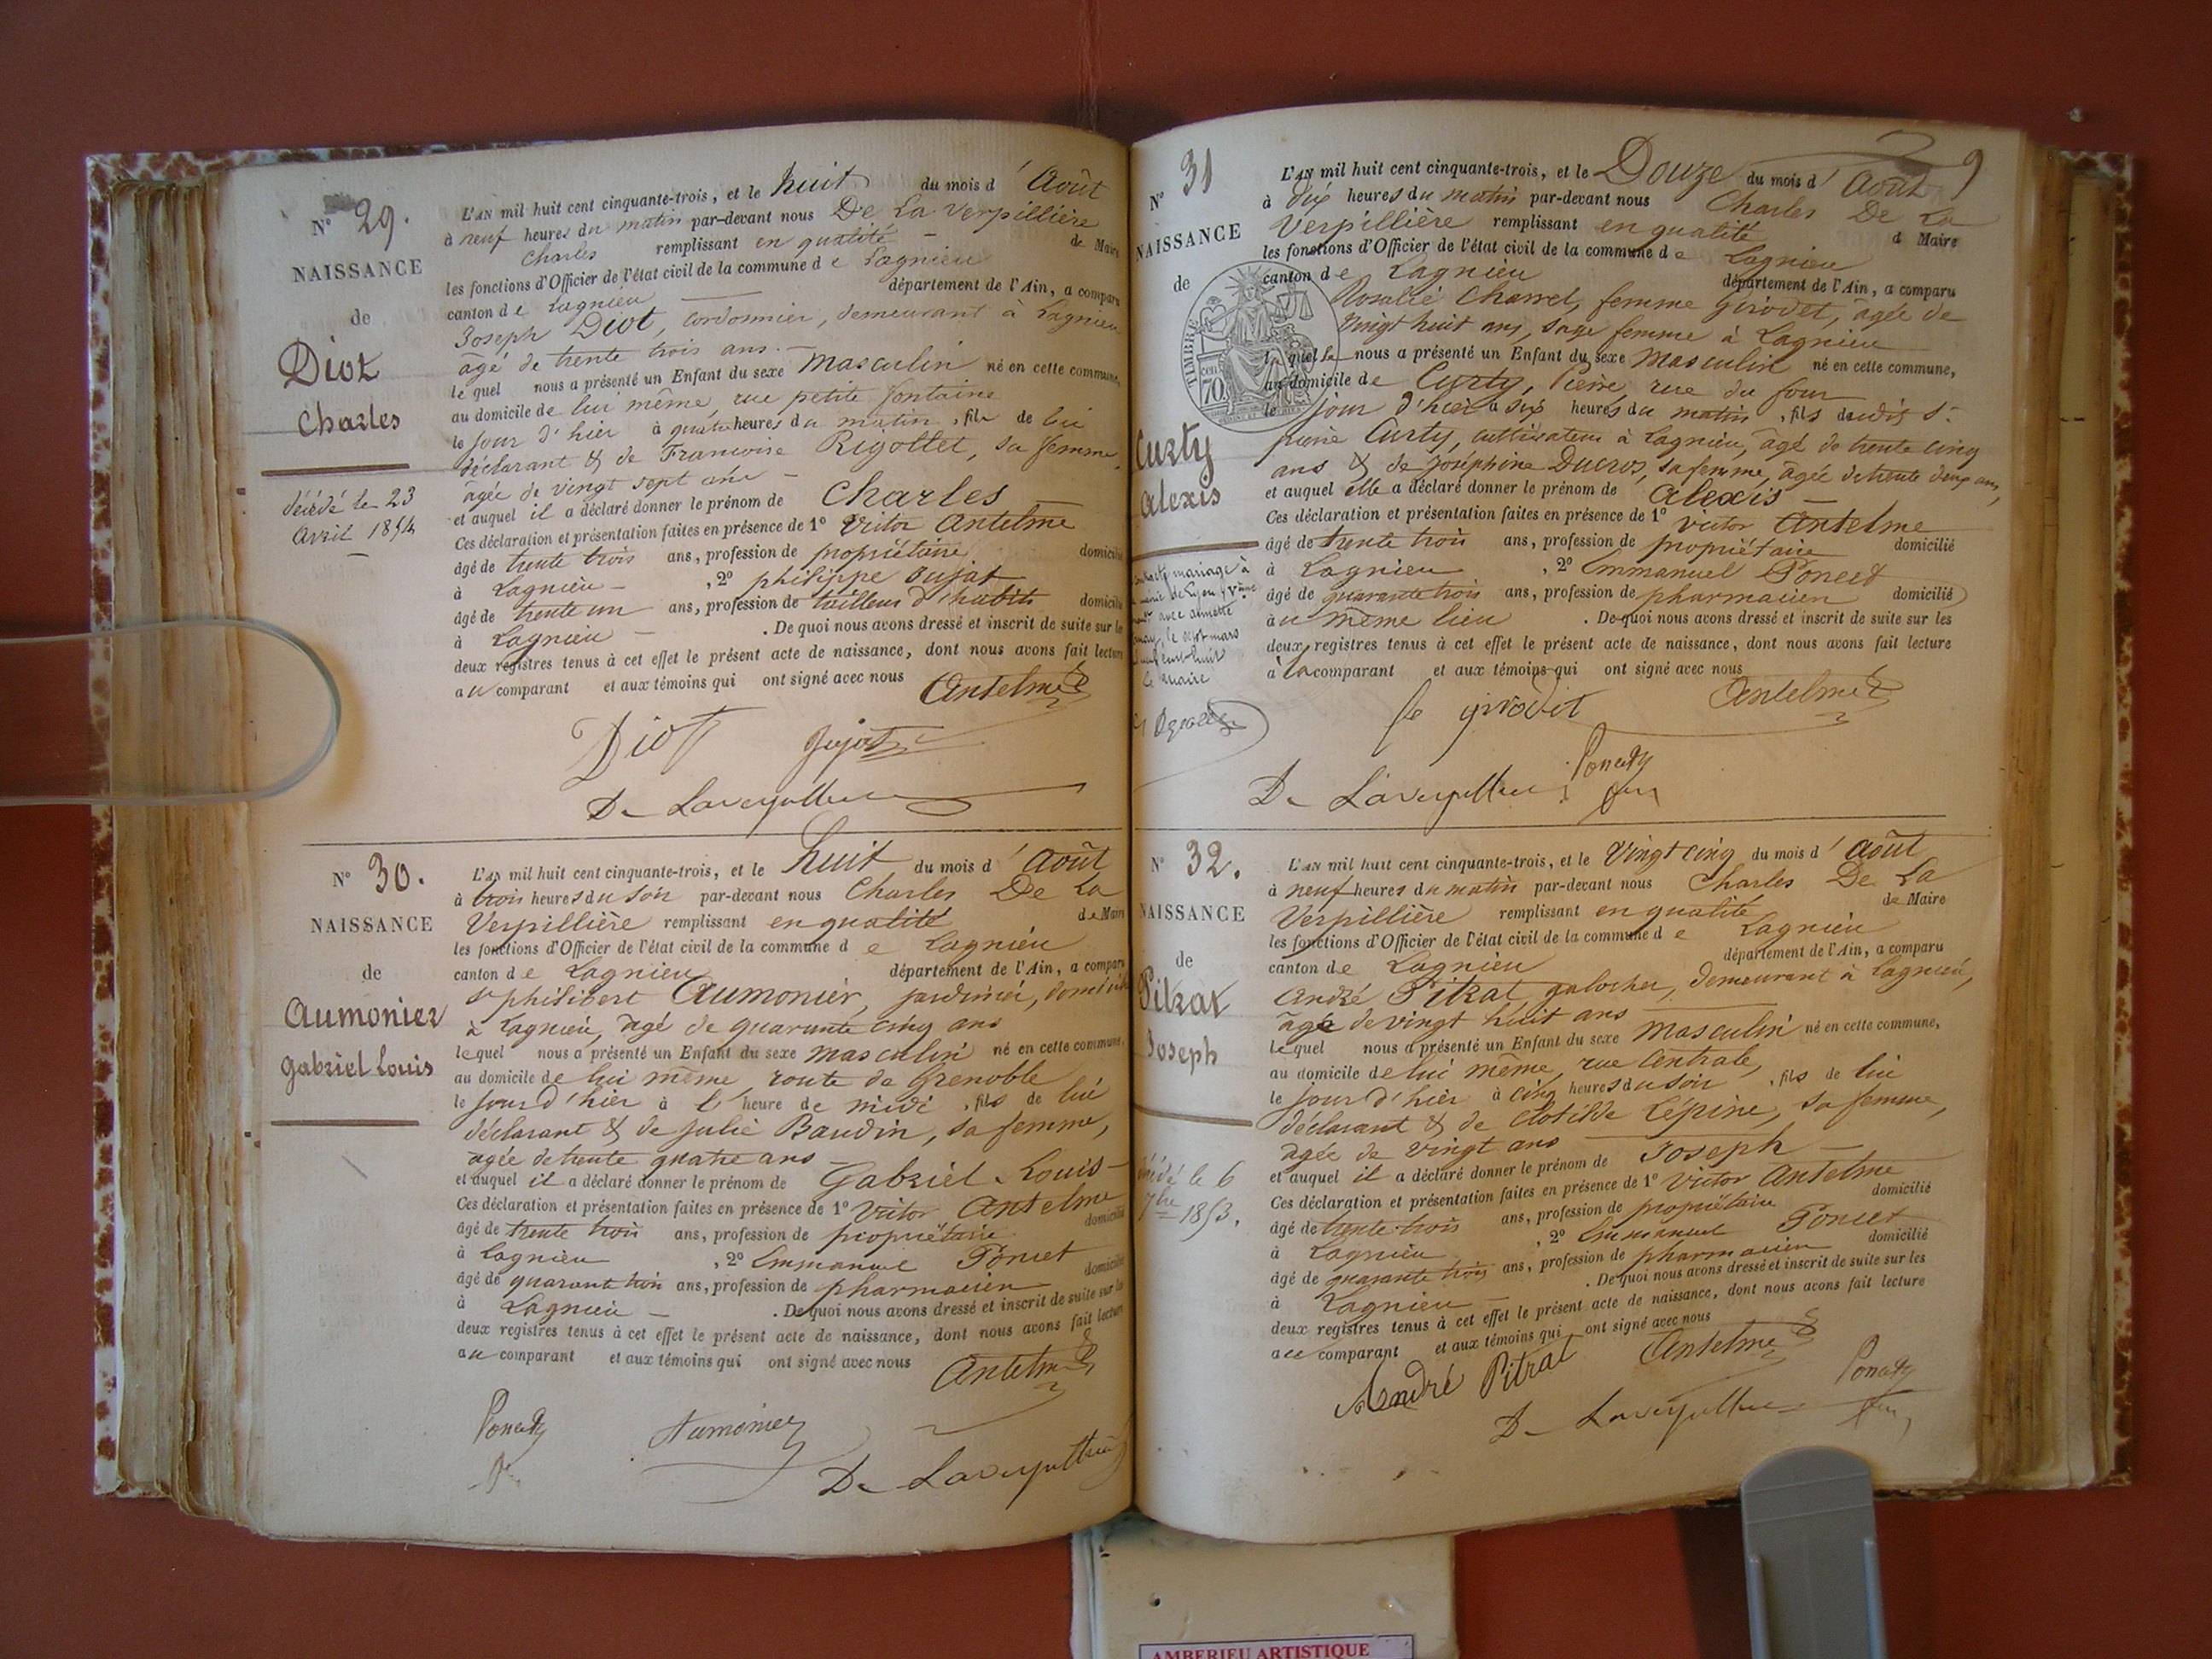 N° 29.
NAISSANCE
de
Diot
Charles
décédé le 23
Avril 1854
L'AN mil huit cent cinquante-trois, et le huit du mois d'Août
à neuf heures du matin par-devant nous De La Verpillière
Charles remplissant en qualité de Maire
les fonctions d'Officier de l'état civil de la commune de Lagnieu
canton de Lagnieu département de l'Ain, a comparu
Joseph Diot, cordonnier, demeurant à Lagnieu
âgé de trente trois ans.
le quel nous a présenté un Enfant du sexe Masculin né en cette commune,
au domicile de lui même, rue petite fontaine
le jour d'hier à quatre heures du matin, fils de lui
déclarant & de Francoise Rigottet, sa femme,
âgée de vingt sept ans
et auquel il a déclaré donner le prénom de Charles
Ces déclaration et présentation faites en présence de 1° Victor Antelme
âgé de trente trois ans, profession de propriétaire domicilié
à Lagnieu, 2° philippe Dujat
âgé de trente un ans, profession de tailleur d'habits domicilié
à Lagnieu. De quoi nous avons dressé et inscrit de suite sur les
deux registres tenus à cet effet le présent acte de naissance, dont nous avons fait lecture
au comparant et aux témoins qui ont signé avec nous
Antelme
Diot Dujat
De Laverpillière
N° 30.
NAISSANCE
de
Aumonier
Gabriel Louis
L'AN mil huit cent cinquante-trois, et le huit du mois d'Août
à trois heures du soir par-devant nous Charles De La
Verpillière remplissant en qualité de Maire
les fonctions d'Officier de l'état civil de la commune de Lagnieu
canton de Lagnieu département de l'Ain, a comparu
sr philibert Aumonier, jardinier, domicilié
à Lagnieu, âgé de quarante cinq ans
lequel nous a présenté un Enfant du sexe Masculin né en cette commune,
au domicile de lui même, route de Grenoble
le jour d'hier à l'heure de midi, fils de lui
déclarant & de Julie Baudin, sa femme,
âgée de trente quatre ans
et auquel il a déclaré donner le prénom de Gabriel Louis
Ces déclaration et présentation faites en présence de 1° Victor Antelme
âgé de trente trois ans, profession de propriétaire domicilié
à Lagnieu, 2° Emmanuel Poncet
âgé de quarante trois ans, profession de pharmacien domicilié
à Lagnieu. De quoi nous avons dressé et inscrit de suite sur les
deux registres tenus à cet effet le présent acte de naissance, dont nous avons fait lecture
au comparant et aux témoins qui ont signé avec nous
Antelme
Poncet Aumonier
De Laverpillière
9
N° 31
NAISSANCE
de
Curty
Alexis
mariage à
avec annette
le sept mars
huit
le maire
TIMBRE
70
L'AN mil huit cent cinquante-trois, et le Douze du mois d'Août
à dix heures du matin par-devant nous Charles De La
Verpillière remplissant en qualité d Maire
les fonctions d'Officier de l'état civil de la commune de Lagnieu
canton de Lagnieu département de l'Ain, a comparu
Rosalie Charrel, femme Girodet, âgée de
Vingt huit ans, sage femme à Lagnieu
la quelle nous a présenté un Enfant du sexe Masculin né en cette commune,
au domicile de Curty, Pierre rue du four
le jour d'hier à dix heures du matin, fils dudit sr
pierre Curty, cultivateur à Lagnieu, âgé de trente cinq
ans & de Joséphine Ducros, sa femme, âgée de trente deux ans,
et auquel elle a déclaré donner le prénom de Alexis
Ces déclaration et présentation faites en présence de 1° Victor Antelme
âgé de trente trois ans, profession de propriétaire domicilié
à Lagnieu, 2° Emmanuel Poncet
âgé de quarante trois ans, profession de pharmacien domicilié
au même lieu. De quoi nous avons dressé et inscrit de suite sur les
deux registres tenus à cet effet le présent acte de naissance, dont nous avons fait lecture
à la comparant et aux témoins qui ont signé avec nous
fe girodet Antelme
De Laverpillière Poncet
N° 32.
NAISSANCE
de
Pitrat
Joseph
décédé le 6
7bre 1853.
L'AN mil huit cent cinquante-trois, et le Vingt cinq du mois d'Août
à neuf heures du matin par-devant nous Charles De La
Verpillière remplissant en qualité de Maire
les fonctions d'Officier de l'état civil de la commune de Lagnieu
canton de Lagnieu département de l'Ain, a comparu
André Pitrat, galocher, demeurant à Lagnieu,
âgé de vingt huit ans
lequel nous a présenté un Enfant du sexe Masculin né en cette commune,
au domicile de lui même, rue Centrale,
le jour d'hier à cinq heures du soir, fils de lui
déclarant & de Clotilde Lépine, sa femme,
âgée de vingt ans
et auquel il a déclaré donner le prénom de Joseph
Ces déclaration et présentation faites en présence de 1° Victor Antelme
âgé de trente trois ans, profession de propriétaire domicilié
à Lagnieu, 2° Emmanuel Poncet
âgé de quarante trois ans, profession de pharmacien domicilié
à Lagnieu. De quoi nous avons dressé et inscrit de suite sur les
deux registres tenus à cet effet le présent acte de naissance, dont nous avons fait lecture
au comparant et aux témoins qui ont signé avec nous
André Pitrat Antelme
De Laverpillière Poncet
AMBERIEU ARTISTIQUE